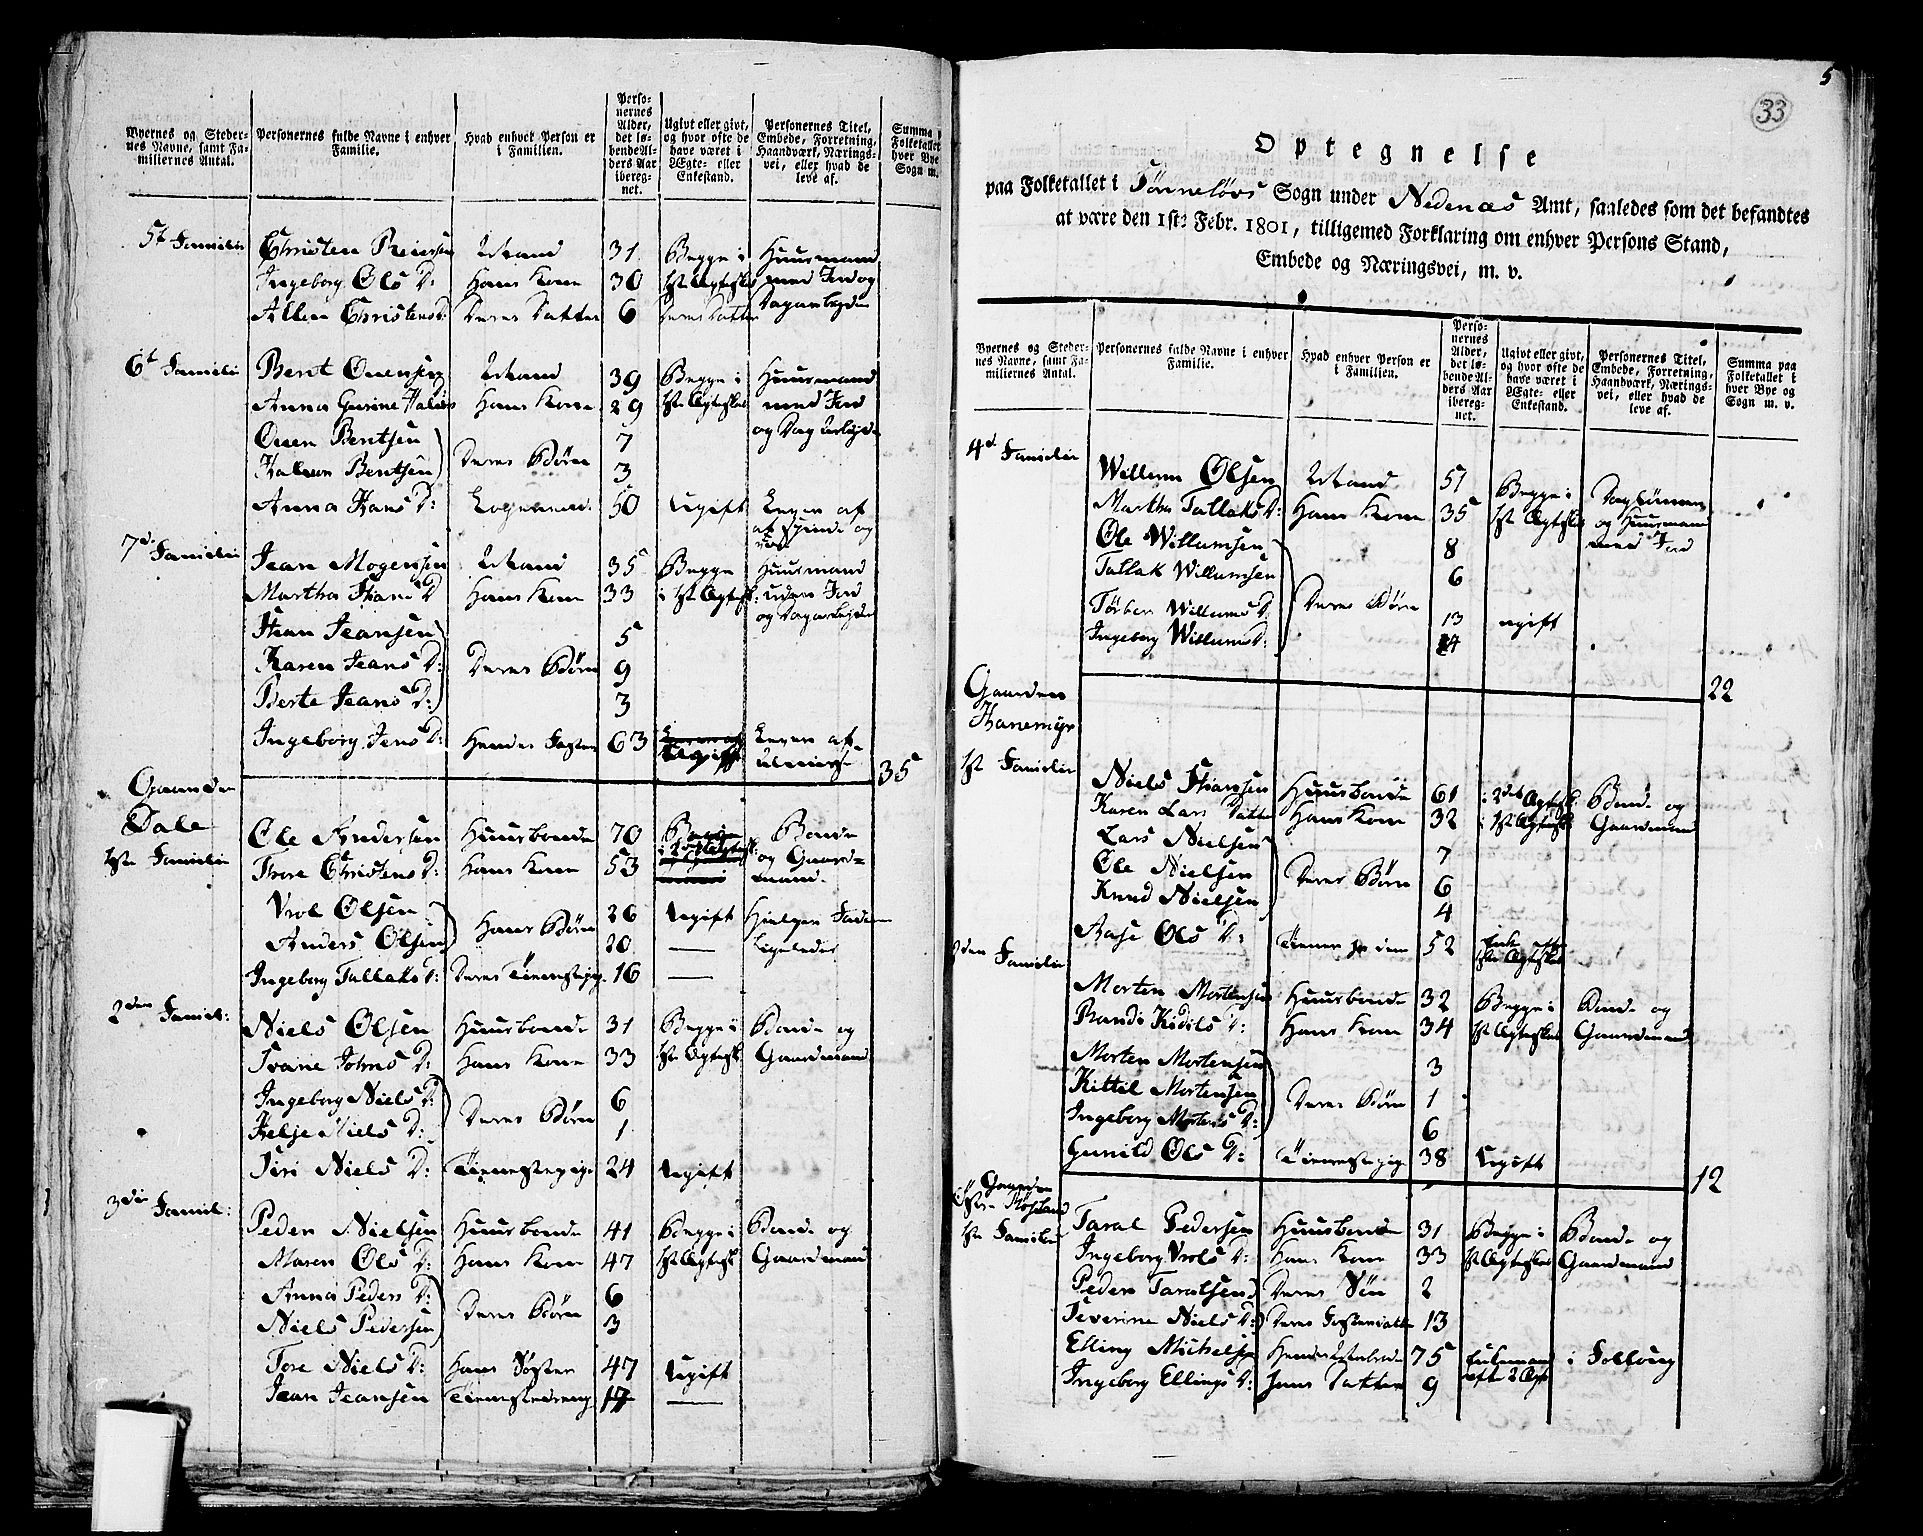 Byernes og Steder-
nes Navne, samt Fa-
miliernes Antal.
Personernes fulde Navne i enhver
Familie.
Hvad enhver Person er
i Familien.
Perso-
nernes
Alder,
det lø-
bende Al-
ders Aar
iberegn-
net.
Ugivt eller givt,
og hvor ofte de
have været i
Ægte- eller
Enkestand.
Personernes Titel,
Embede, Forretning,
Haandværk, Nærings-
vei, eller hvad de
leve af.
Summa p
Folketallet
hver Bye
Sogn m.
5t Familie Christen Reiersen Mand 31 Begge i Huusmand
Ingeborg Ols D: Hans Kone 30 1ste Ægteskab med Jord og
Allen Christens D: Deres Datter 6 Deres Datter Dagarbeyder
6t Familie Bent Ouensen Mand 39 Begge i Huusmand
Anna Gurine Halvors Hans Kone 29 1ste Ægteskab med Jord
Ouen Bentsen Deres Børn 7 og Dag arbeyder
Halvor Bentsen 3
Anna Hans D: 50 Ugift Lever af
at spinde og
7d Familie Jean Mogensen Mand 35 Begge Huusmand
Martha Hans D Hans Kone 33 i 1ste Ægtesk: uden Jord
og Dagarbeyder
Hans Jeansen 5
Karen Jeans D: Deres Børn 9
Berte Jeans D: 3
Ingeborg Jens D: Hendes Søster 63 Ugift Lever af
Almisse 35
Gaarden
Dale Ole Andersen Huusbonde 70 Begge Bonde
1ste Familie Thore Christens D: Hans Kone 53 og Gaard-
mand.
Vrol Olsen Hans Børn 26 Ugift Hielper Faderen
Anders Olsen 20 — Ligeledes
Ingeborg Tallaks D: Deres Tienestepige 16 —
2den Famil: Niels Olsen Huusbonde 31 Begge i Bonde og
Tvane Johns D: Hans Kone 33 1ste Ægtesk: Gaardmand
Ingeborg Niels D: Deres Børn 6
Helje Niels D: 1
Siri Niels D: Tienestepige 24 Ugift
3die Famil: Peder Nielsen Huusbonde 41 Begge i Bonde og
Maren Ols D: Hans Kone 47 1ste Ægtesk: Gaardmand
Anna Peders D: Deres Børn 6
Niels Pedersen 3
Tore Niels D: Hans Søster 47 Ugift
Jean Jeansen Tienestedreng 17 —
5
33
Optegnelse
paa Folketallet i Tønneløvs Sogn under Nedenæs Amt, saaledes som det befandtes
at være den 1ste Febr. 1801, tilligemed Forklaring om enhver Persons Stand,
Embede og Næringsvei, m. v.
Byernes og Steder-
nes Navne, samt Fa-
miliernes Antal.
Personernes fulde Navne i enhver
Familie.
Hvad enhver Person er
i Familien.
Perso-
nernes
Alder,
det lø-
bende Al-
ders Aar
iberegn-
net.
Ugivt eller givt,
og hvor ofte de
have været i
Ægte- eller
Enkestand.
Personernes Titel,
Embede, Forretning,
Haandværk, Nærings-
vei, eller hvad de
leve af.
Summa paa
Folketallet i
hver Bye og
Sogn m. v.
4d Familie
Willum Olsen Mand 51 Begge i Daglønner
Martha Tallaks D: Hans Kone 35 1ste Ægtesk: og Huusmand
Ole Willumsen 8 med Jord
Tallak Willumsen 6
Tørber Willums D: Deres Børn 13 ugift
Ingeborg Willums D: 4
Gaarden 22
Hanemyr
1ste Familie
Niels Hansen Huusbonde 61 i 2det Ægtesk: Bonde og
Karen Lars Datter Hans Kone 32 i 1ste Ægtesk: Gaardmand
Lars Nielsen 7
Ole Nielsen Deres Børn 6
Knud Nielsen 4
Aase Ols D: Tiener for dem 52 Enke efter
1ste Ægteskab
2den Familie
Morten Mortensen Huusbonde 32 Begge i Bonde og
Randi Kidils D: Hans Kone 34 1ste Ægteskab Gaardmand
Morten Mortensen 3
Kittil Mortensen Deres Børn 1
Ingeborg Mortens D: 6
Gunild Ols D: Tienestepige 38 Ugift
12
Gaarden
Røseland
1ste Familie Taral Pedersen Huusbonde 31 Begge i Bonde og
Ingeborg Vrols D: Hans Kone 33 1ste Ægteskab Gaardmand
Peder Taralsen Deres Søn 2
Severine Niels D: Deres Fosterdatter 13
Elling Michelsen 75 Enkemand i Folloug
efter 2 Ægt
Ingeborg Ellings D: Hans Datter 9